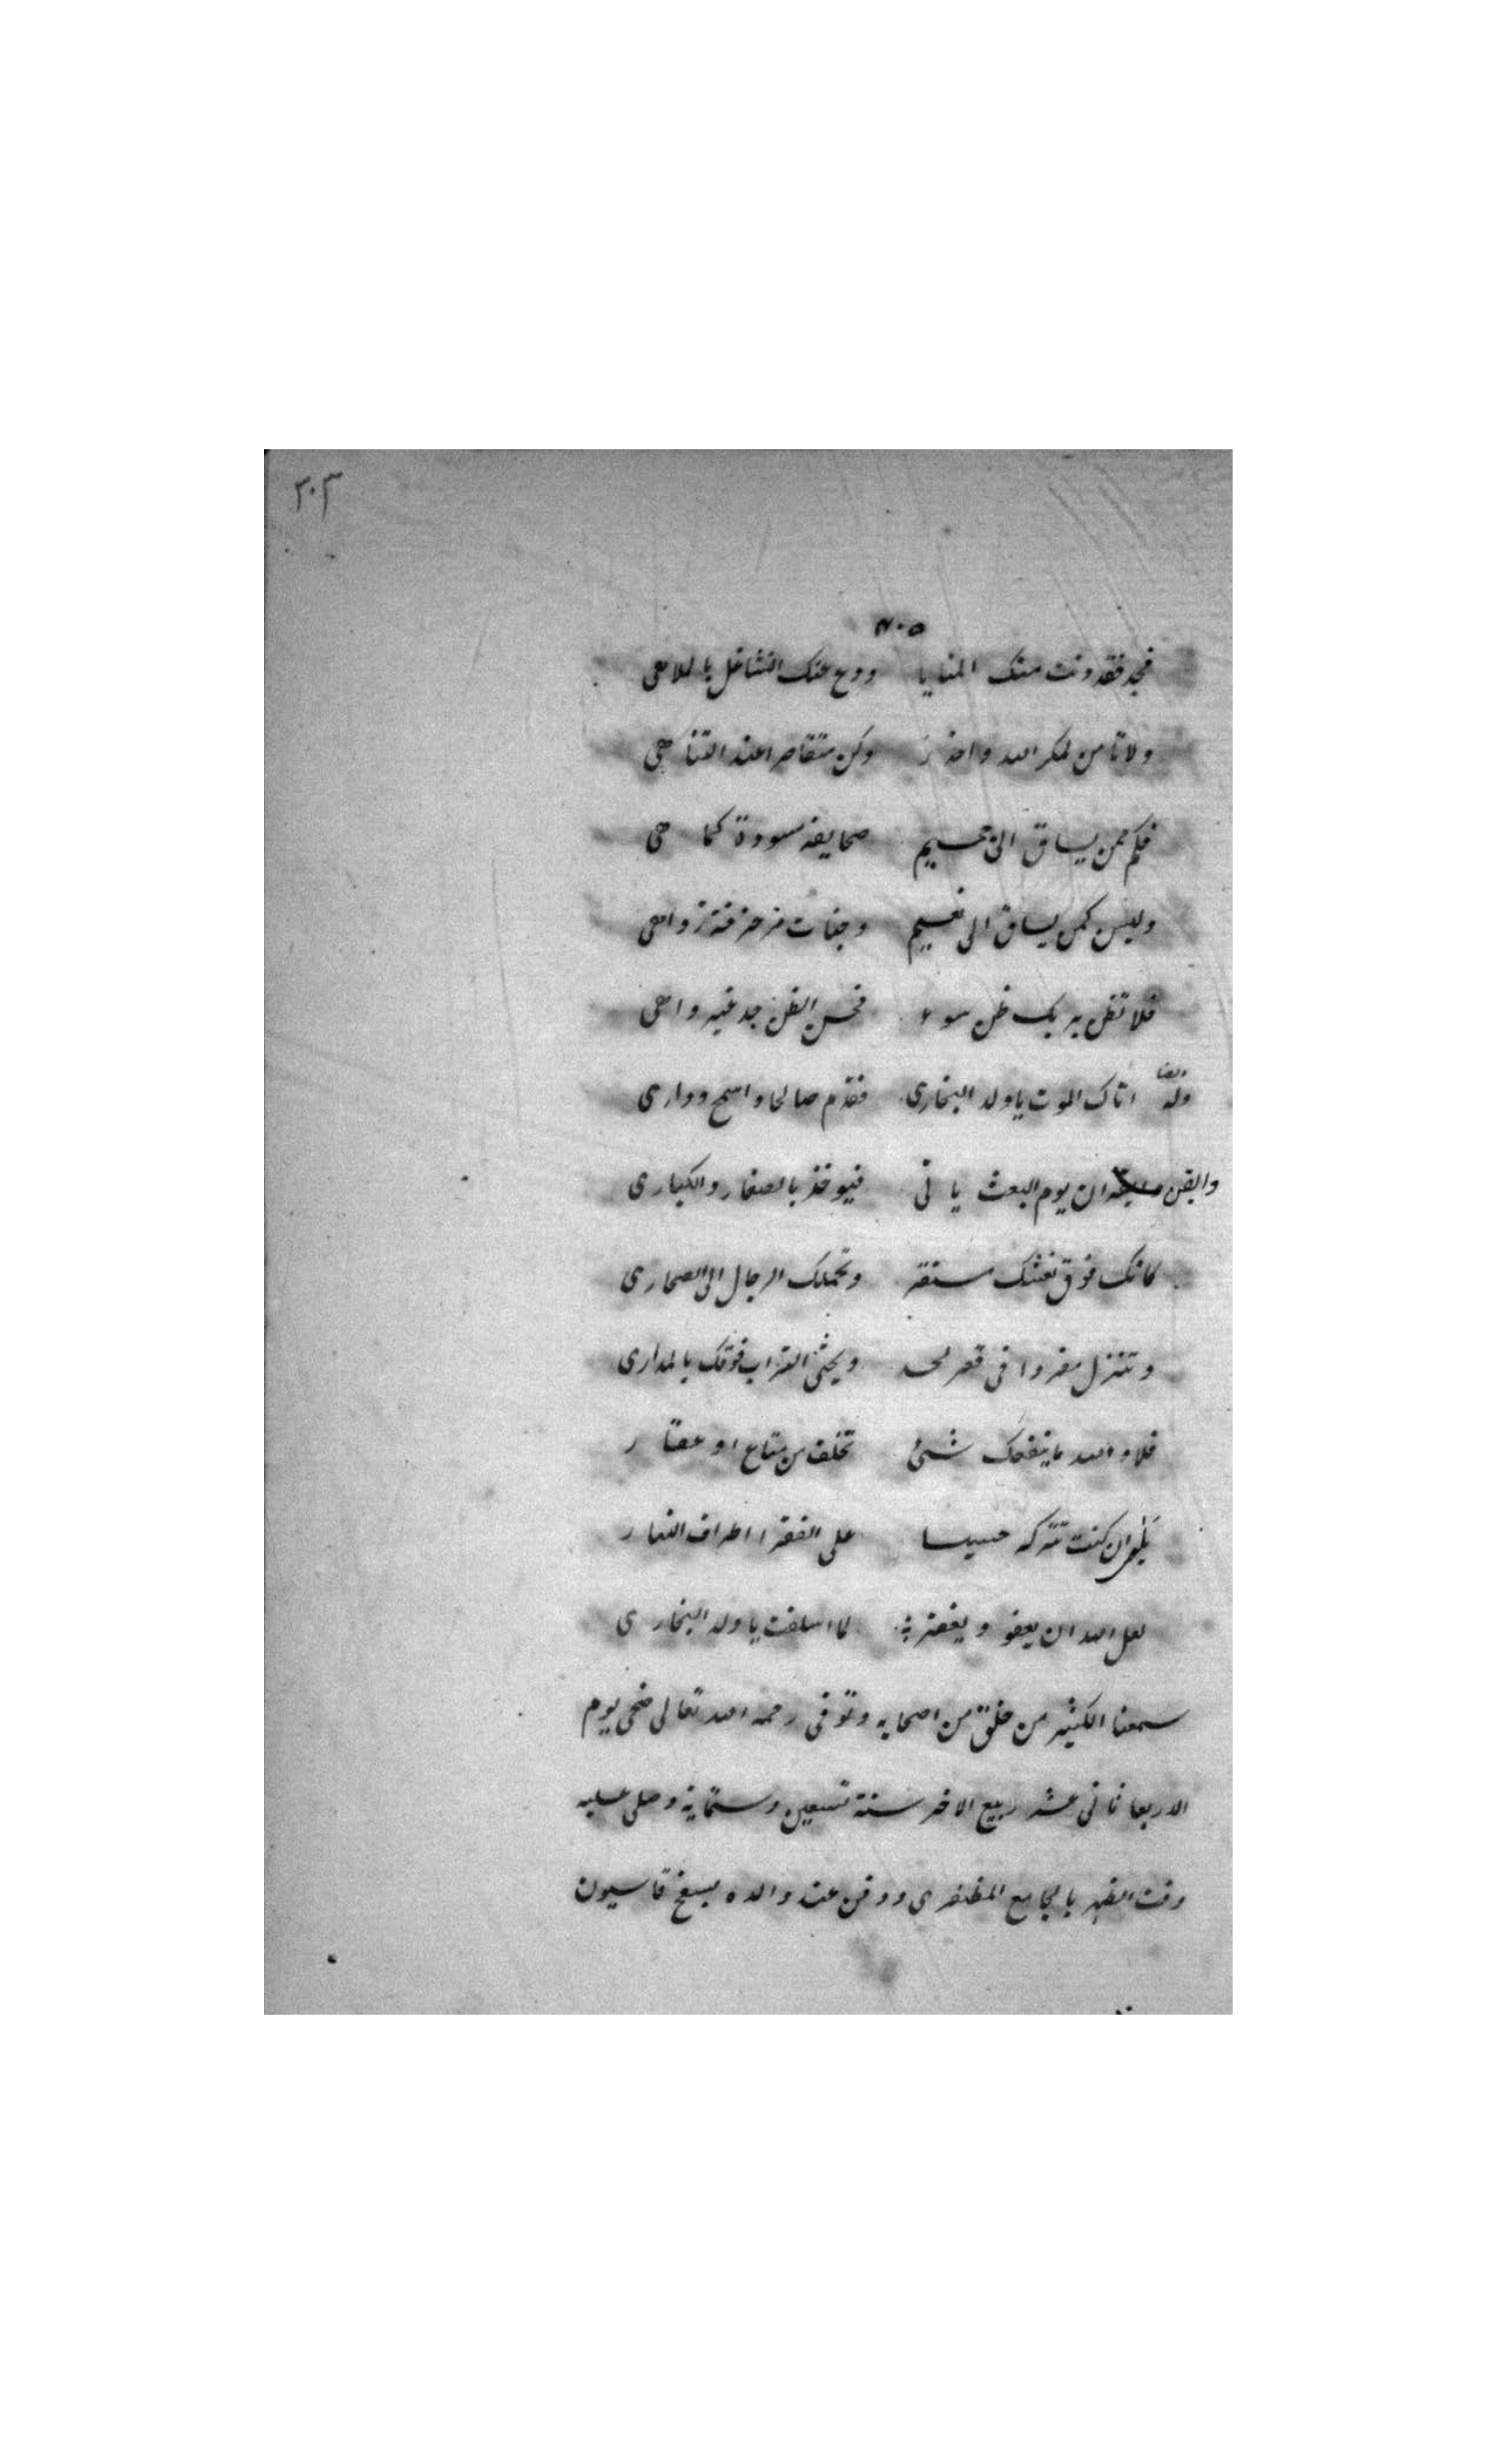 ٣٠٣
٦٠٥
فجد فقد دنت منك المنايا ودع عنك التشاغل بالملاهى
ولا تامن لمكر الله واحذر وكن متقاصرا عند التناهى
فكم ممن يساق الى جحيم صحايفه مسودة كما هى
وليس كمن يساق الى نعيم وجنات مزخرفة زواهى
فلا تظن بربك ظن سوء فحسن الظن جد غير واهى
وله ايضا اتاك الموت يا ولد البخارى فقدم صالحا واسمع ودارى
وايقن ان يوم البعث ياتى فيوخذ بالصغار والكبارى
كانك فوق نعشك مستقر وتحملك الرجال الى الصحارى
وتنزل مفردا فى قعر لحد ويحثى التراب فوقك بالمدارى
فلا والله ما ينفعك شئ تخلفه من متاع او عقار
بلى ان كنت تتركه حبيسا على الفقرا اطراف النهار
لعل الله ان يعفو ويغفر لما اسلفت يا ولد البخارى
سمعنا الكثير من خلق من اصحابه وتوفى رحمه الله تعالى ضحى يوم
الاربعا ثانى عشر ربيع الاخر سنة تسعين وستماية وصلى عليه
وقت الظهر بالجامع المظفرى ودفن عند والده بسفح قاسيون